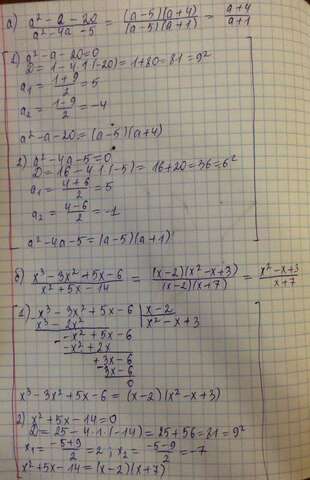 а) a² - a - 20 / a² - 4a - 5 = (a-5)(a+4) / (a-5)(a+1) = a+4 / a+1
1) a² - a - 20 = 0
D = 1 - 4·1·(-20) = 1 + 80 = 81 = 9²
a₁ = 1+9 / 2 = 5
a₂ = 1-9 / 2 = -4
a² - a - 20 = (a-5)(a+4)
2) a² - 4a - 5 = 0
D = 16 - 4·1·(-5) = 16 + 20 = 36 = 6²
a₁ = 4+6 / 2 = 5
a₂ = 4-6 / 2 = -1
a² - 4a - 5 = (a-5)(a+1)
б) x³ - 3x² + 5x - 6 / x² + 5x - 14 = (x-2)(x² - x + 3) / (x-2)(x+7) = x² - x + 3 / x+7
1) x³ - 3x² + 5x - 6 | x - 2
x³ - 2x² | x² - x + 3
-x² + 5x - 6
-x² + 2x
+3x - 6
3x - 6
0
x³ - 3x² + 5x - 6 = (x-2)(x² - x + 3)
2) x² + 5x - 14 = 0
D = 25 - 4·1·(-14) = 25 + 56 = 81 = 9²
x₁ = -5+9 / 2 = 2; x₂ = -5-9 / 2 = -7
x² + 5x - 14 = (x-2)(x+7)